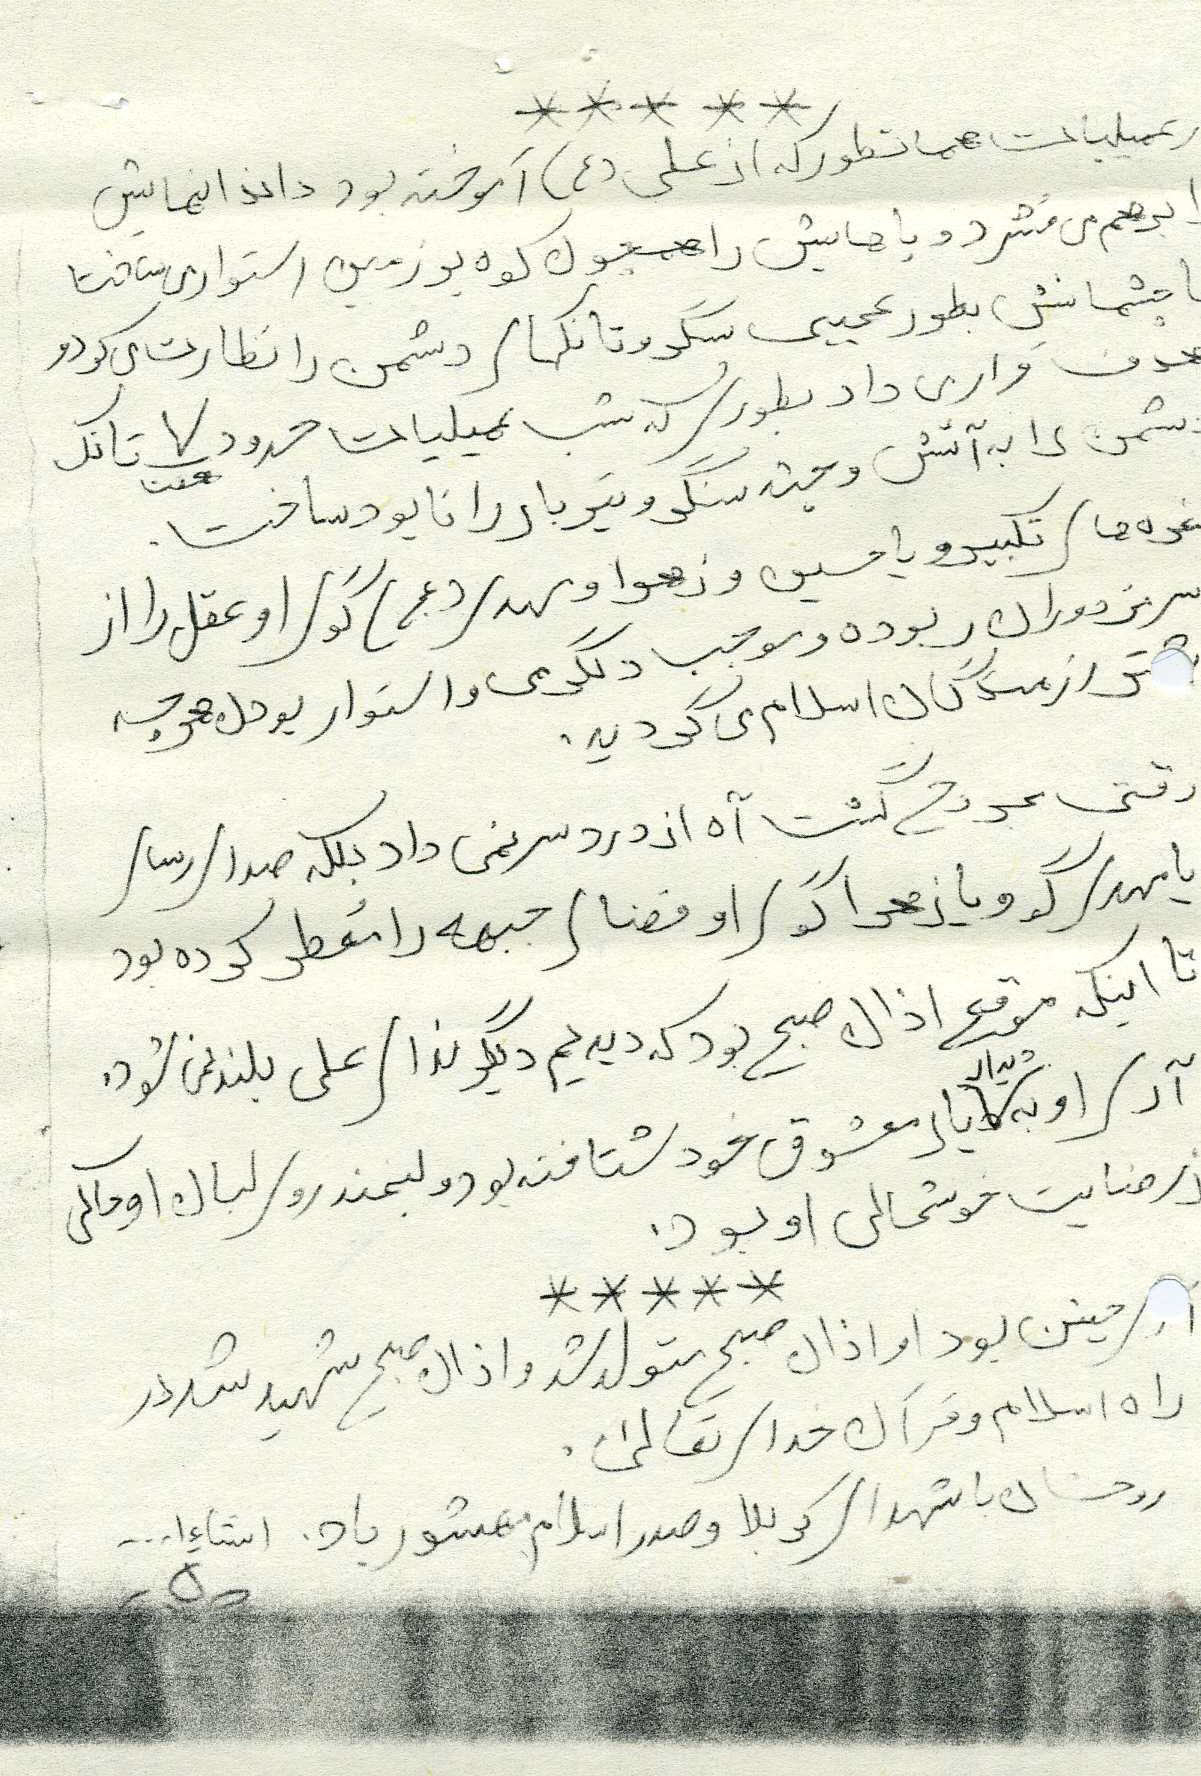 *****
در عملیات همانطور که از علی (ع) آموخته بود دندانهایش
را برهم می فشرد و پاهایش را همچون کوه بر زمین استوار می ساخت
با چشمانش بطور عجیبی سنگر و تانکهای دشمن را نظارت می کرد و
هدف قرار می داد بطوری که شب عملیات حدود ۷ هفت تانک
دشمن را به آتش و چند سنگر و تیربار را نابود ساخت.
نعره های تکبیر و یا حسین و زهرا و مهدی (عج) گوی او عقل را از
سر مزدوران ربوده و موجب دلگرمی و استوار بودن هرچه
بیشتر رزمندگان اسلام می گردید.
وقتی مجروح گشت آه از درد سر نمی داد بلکه صدای رسای
یا مهدی گو و یا زهرا گوی او فضای جبهه را معطر کرده بود
تا اینکه موقع اذان صبح بود که دیدیم دیگر ندای علی بلند نمی شود.
آری او به دیدار یار معشوق خود شتافته بود و لبخند روی لبان او حاکی
از رضایت خوشحالی او بود.
*****
آری چنین بود او اذان صبح متولد شد و اذان صبح شهید شد در
راه اسلام و قرآن خدای تعالی.
روحشان با شهدای کربلا و صدر اسلام محشور باد. انشاءا...